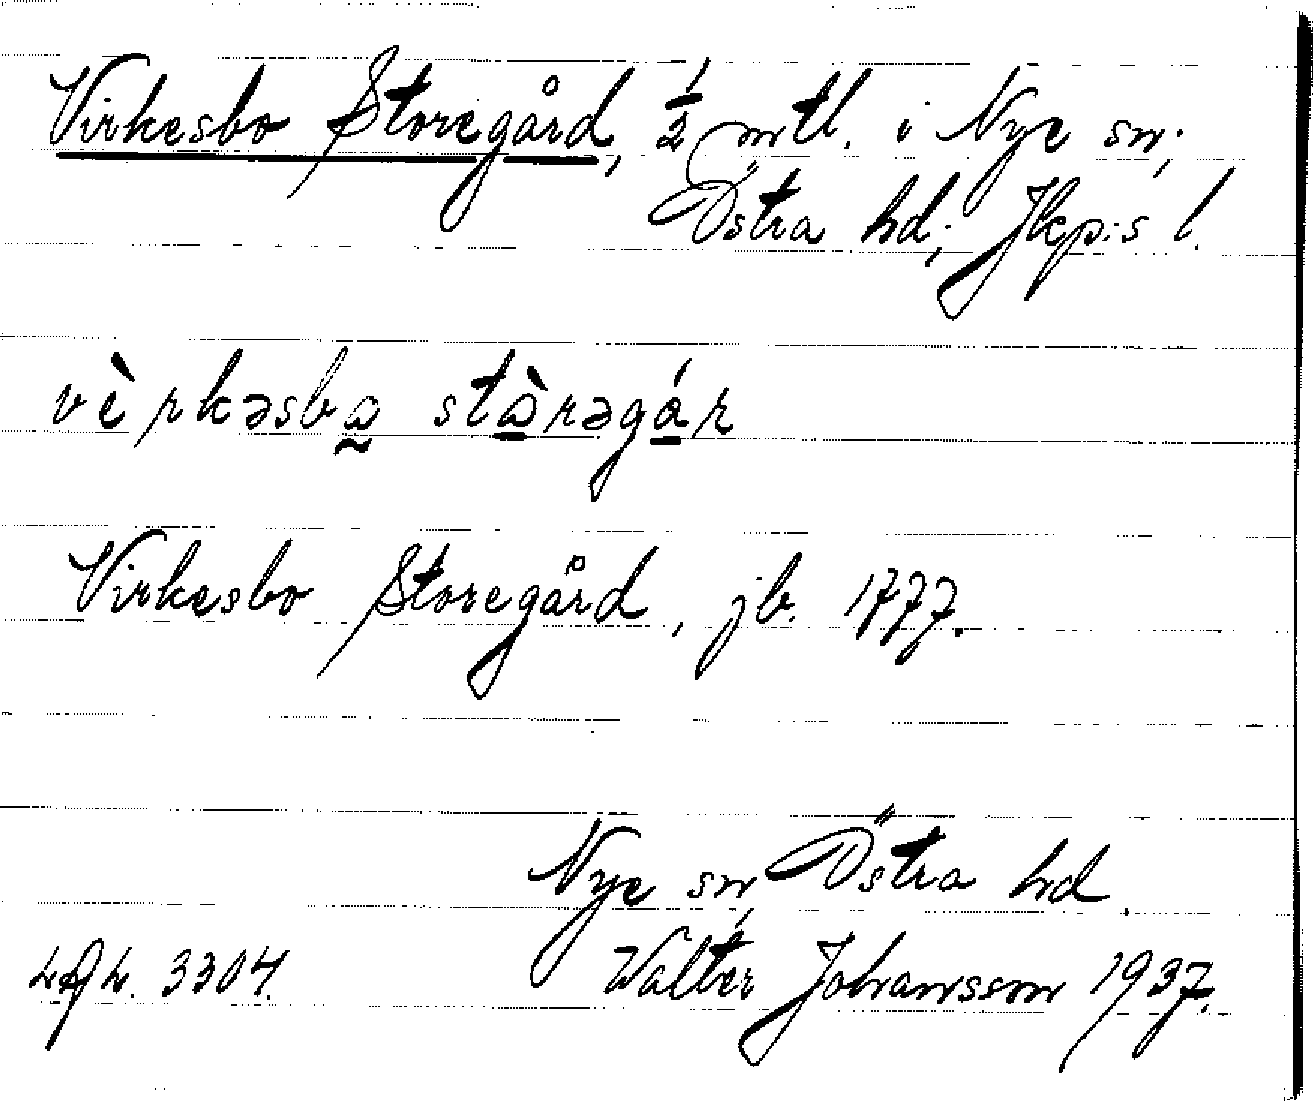 Virkesbo Storegård, 1/2 mtl. i Nye sn,
Östra hd, Jkp:s l.
vèrkəsbꙍ̰ stꙍ̱̀rəgá̱r
Virkesbo Storegård, jb. 1777.
Nye sn, Östra hd.
3304. Walter Johansson 1937.